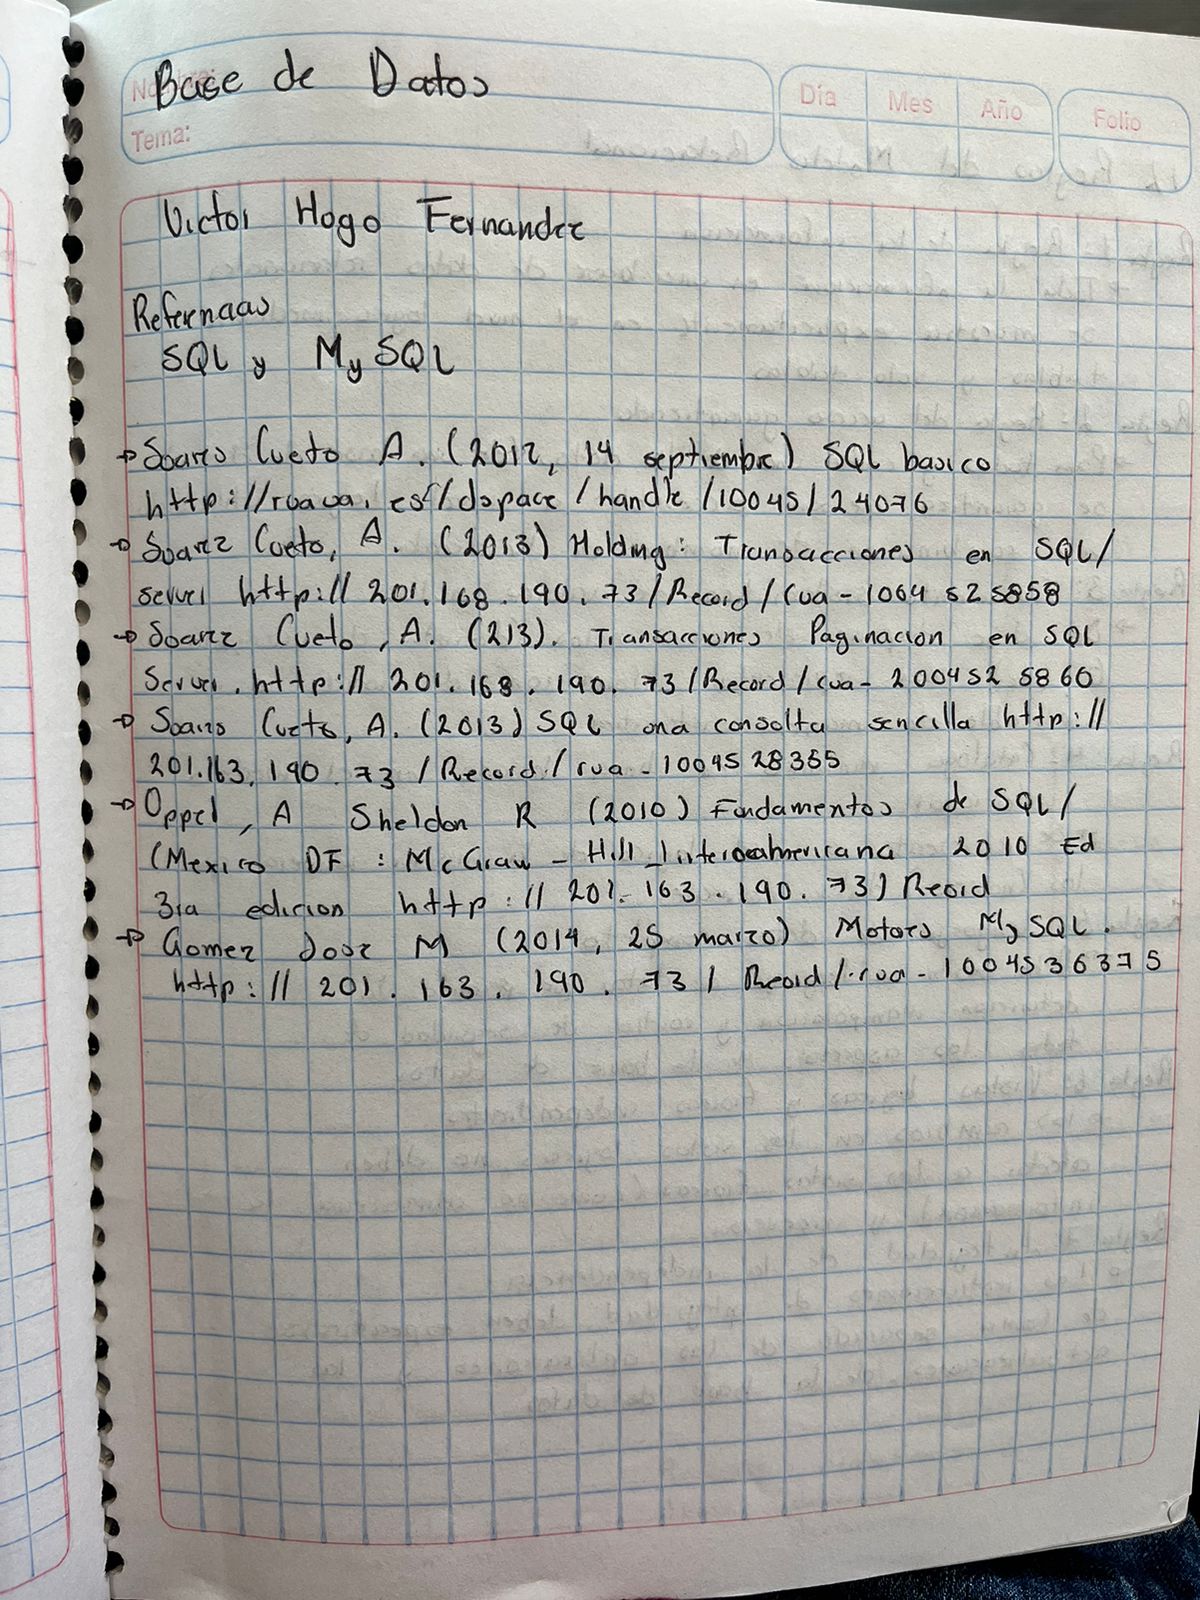 Base de Datos
Nombre:
Tema:
Día Mes Año Folio
Victor Hogo Fernandez
Refernaas
SQL y My SQL
→ Soares Cueto A. (2012, 14 septiembre) SQL basico
http://ruaua. esf/dspace/handle/10045/24076
→ Soarez Coeto, A. (2013) Holding: Transacciones en SQL/
server http:// 201.168.190.73/Record/cua-1064 525858
→ Soarez Cueto, A. (213). Transacciones Paginacion en SQL
Server. http:// 201.168.190.73/Record/cua-200452 5860
→ Soares Cueto, A. (2013) SQL ona consolta sencilla http://
201.163.190 73/Record/rua-10045 28355
→ Oppel, A Sheldon R (2010) Fondamentos de SQL/
(Mexico DF: McGraw-Hill Interoeamericana 2010 Ed
3ra edicion http://201.163.190.73) Record
→ Gomez Jose M (2014, 25 marzo) Motores My SQL.
http:// 201.163.190.73/ Record/.rua-1004536375